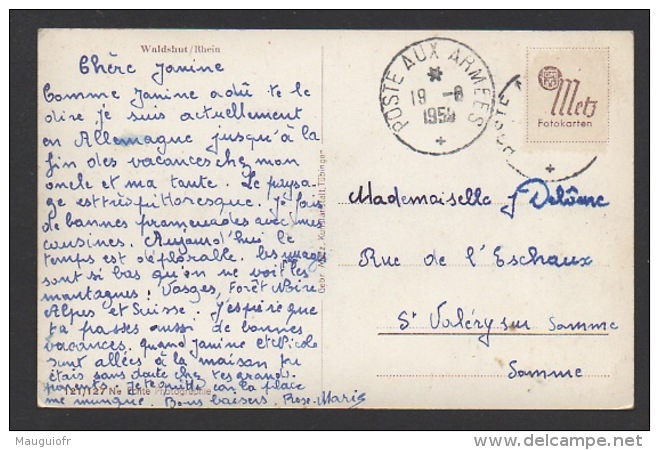 Waldshut/Rhein
Chère Janine
Comme Janine a dû te le
dire je suis actuellement
en Allemagne jusqu'à la
fin des vacances chez mon
oncle et ma tante. Le paysa-
ge est très pittoresque. Je fais
de bonnes promenades avec mes
cousines. Aujourd'hui le
temps est déplorable. les nuages
sont si bas qu'on ne voit les
montagnes: Vosges, Forêt Noire
Alpes et Suisse. J'espère que
tu passes aussi de bonnes
vacances. quand Janine et Nicole
sont allées à la maison tu
étais sans doute chez tes grand-
parents. Je te quitte car la place
me manque. Bons baisers. Rose-Marie
121/127 Ne Echte Photographie
Gebr. Metz, Kunstanstalt, Tübingen
POSTE AUX ARMEES
19 -8
POSTE
Metz
Fotokarten
Mademoiselle J Delôme
Rue de l'Eschaux
St Valéry sur Somme
Somme
Mauguiofr
www.delcampe.net